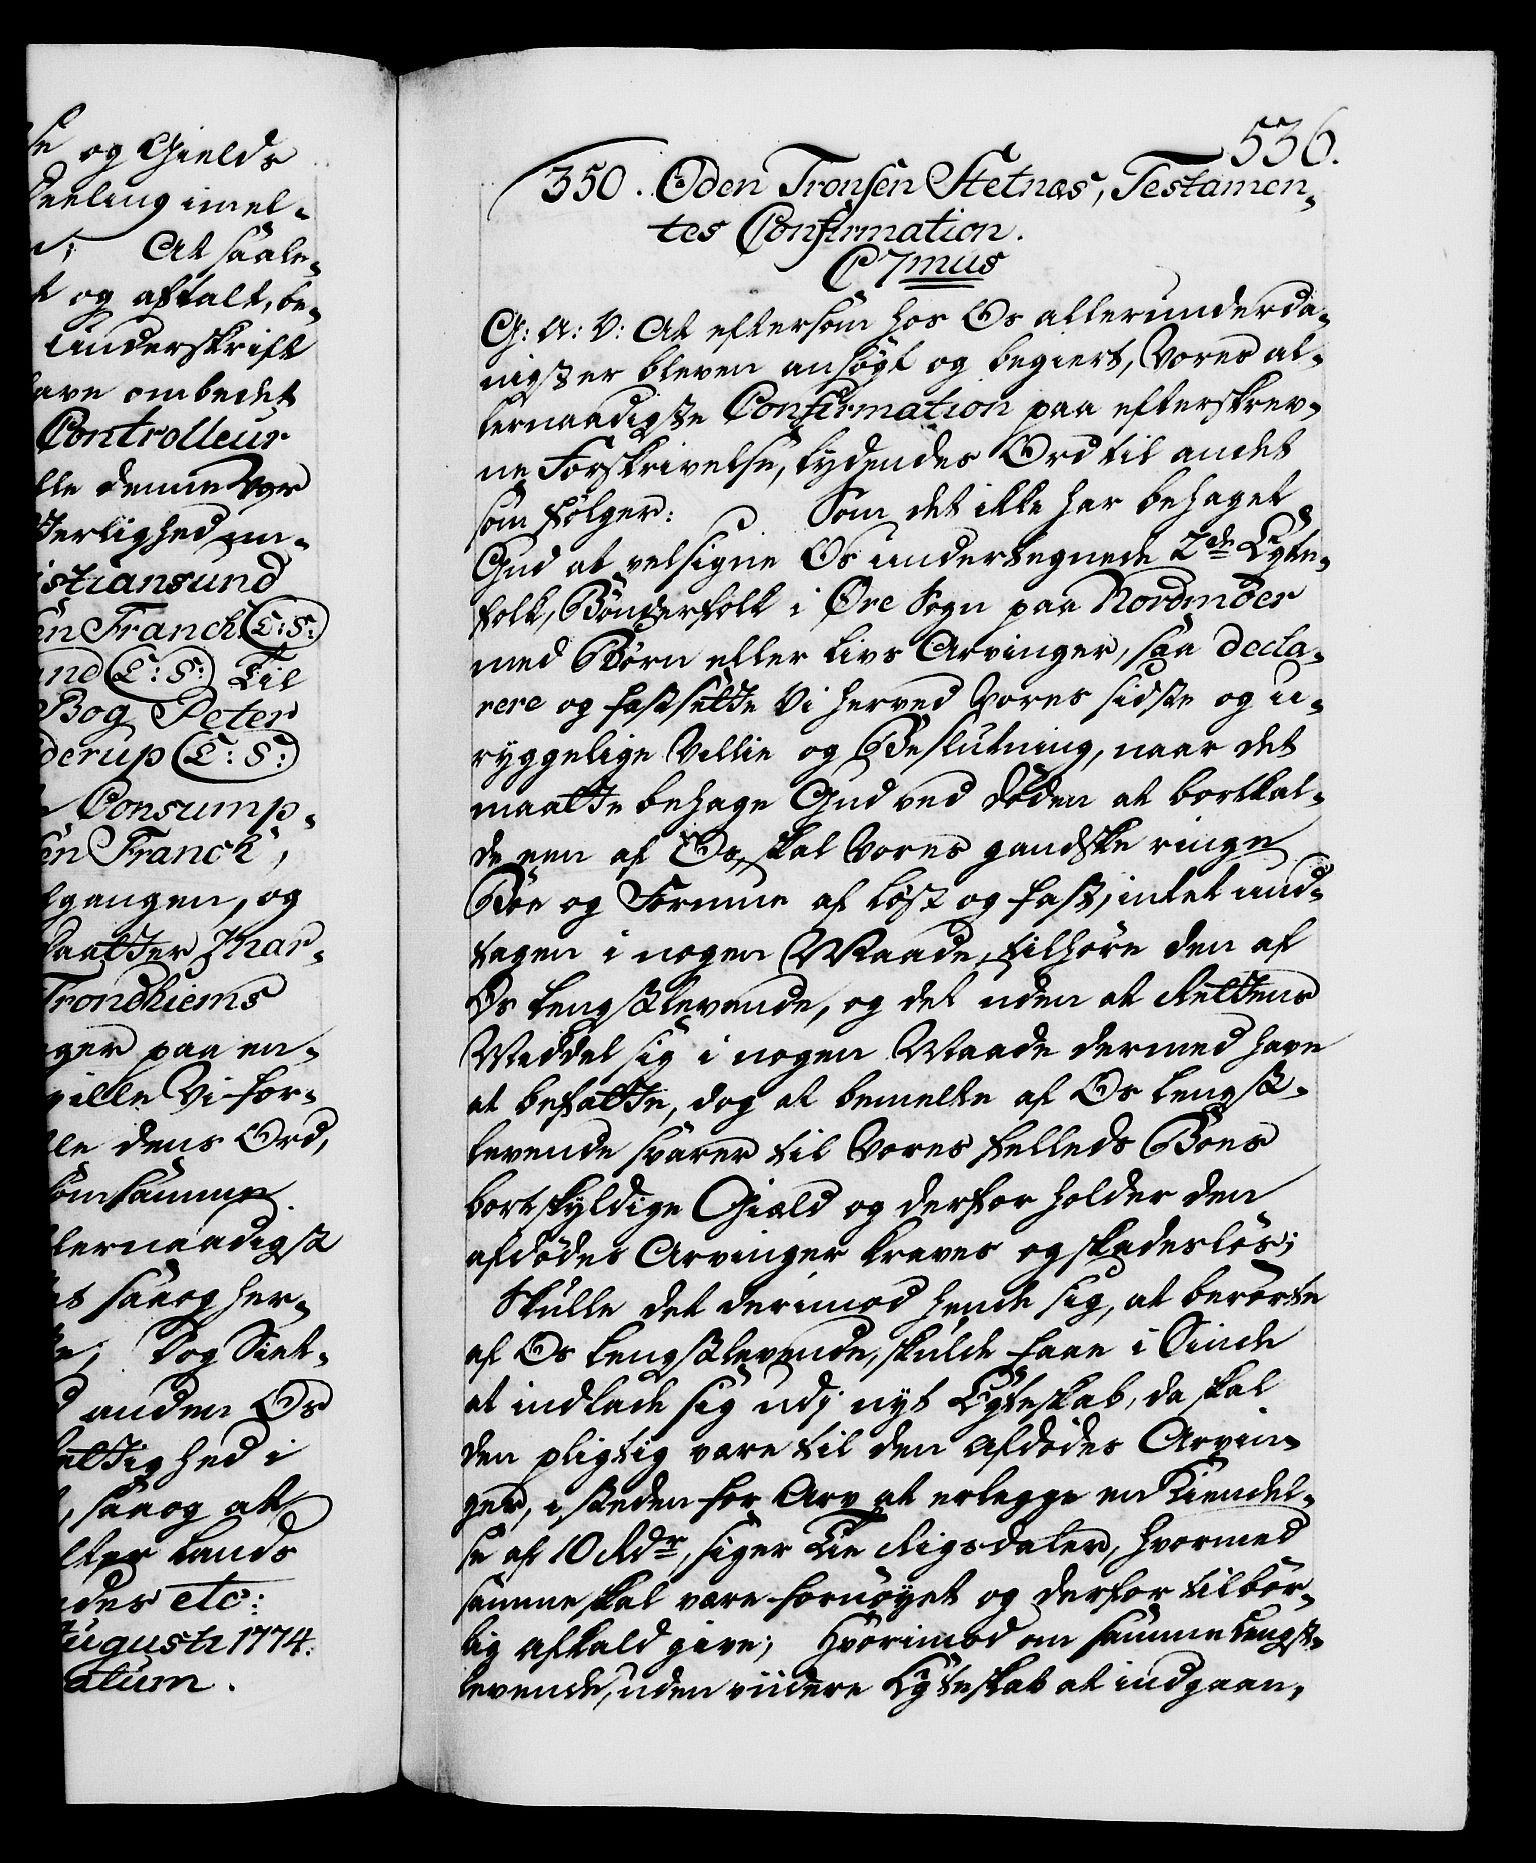 se og Gields
Deeling imel-
n; At saale-
t og aftalt, be-
Underskrift
have ombedet
Controlleur
lle denne Vor
sterlighed un-
istiansund
en Franck (L:S:)
und (L:S:) Til
Bog Peter
derup (L:S:)
Consump-
en Franck,
gangen, og
Daatter Khar-
Trondhiems
ger paa en-
ville Vi for-
lle dens Ord,
som samme
lernaadigst
t saa og her-
e, Dog Siet-
d anden Os
ettighed i
, saa og at
lfer Lands
des etc:
Augusti 1774.
atum.
536.
350. Oden Tronsen Stetnæs, Testamen-
tes Confirmation.
C 7mus
G: A: V: At eftersom hos Os allerunderda-
nigst er bleven ansøgt og begiert, Vores al-
lernaadigste Confirmation paa efterskrev-
ne Forskrivelse, lydendes Ord til andet
som følger: Som det ikke har behaget
Gud at velsigne Os undertegnede 2de Egte-
folk, Bønderfolk i Øre Sogn paa Nordmøer
med Børn eller Livs Arvinger, saa decla-
rere og fastsette Vi herved Vores sidste og u-
ryggelige Villie og Beslutning, naar det
maatte behage Gud ved Døden at bortkal-
de een af Os, skal Vores gandske ringe
Boe og Formue af løst og fast, intet und-
tagen i nogen Maade, tilhøre den af
Os Lengstlevende, og det uden at Rettens
Middel sig i nogen Maade dermed have
at befatte, dog at bemelte af Os Lengst-
levende svarer til Vores felleds Boes
bortskyldige Giæld og derfor holder den
afdødes Arvinger kraves og skadesløs;
Skulle det derimod hende sig, at berørte
af Os Lengstlevende, skulde faae i Sinde
at indlade sig udj nyt Egteskab, da skal
den pligtig være til den Afdødes Arvin-
ger, i steden for Arv at erlegge en Kiendel-
se af 10 Rdr, siger Tie Rigsdaler, hvormed
samme skal være fornøyet og derfor tilbør-
lig afkald give; Hvorimod om samme Lengst-
levende, uden viidere Egteskab at indgaae,